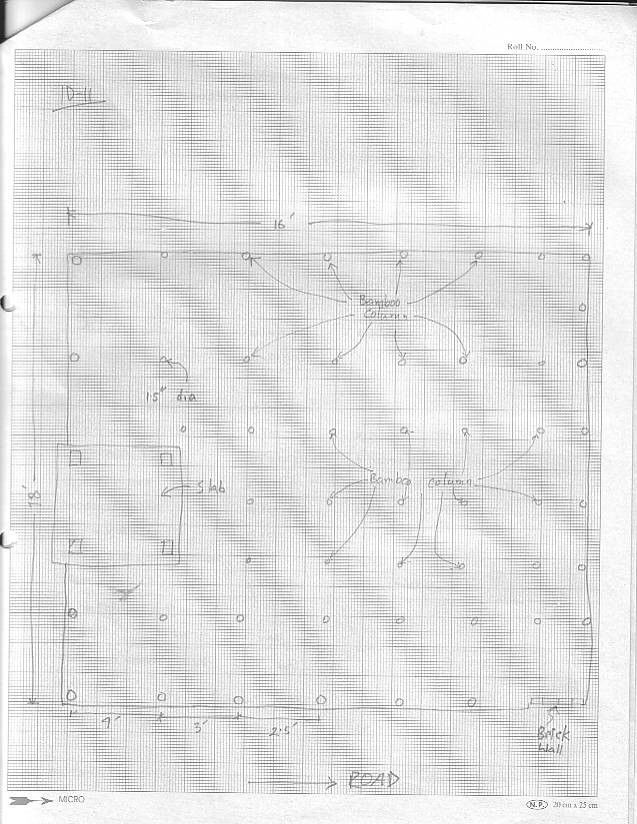 Roll No.
ID-11
16'
Bamboo
Column
1.5" dia
Bamboo Column
Slab
18'
4'
3'
2.5'
Brick
Wall
ROAD
MICRO
N.P. 20 cm x 25 cm